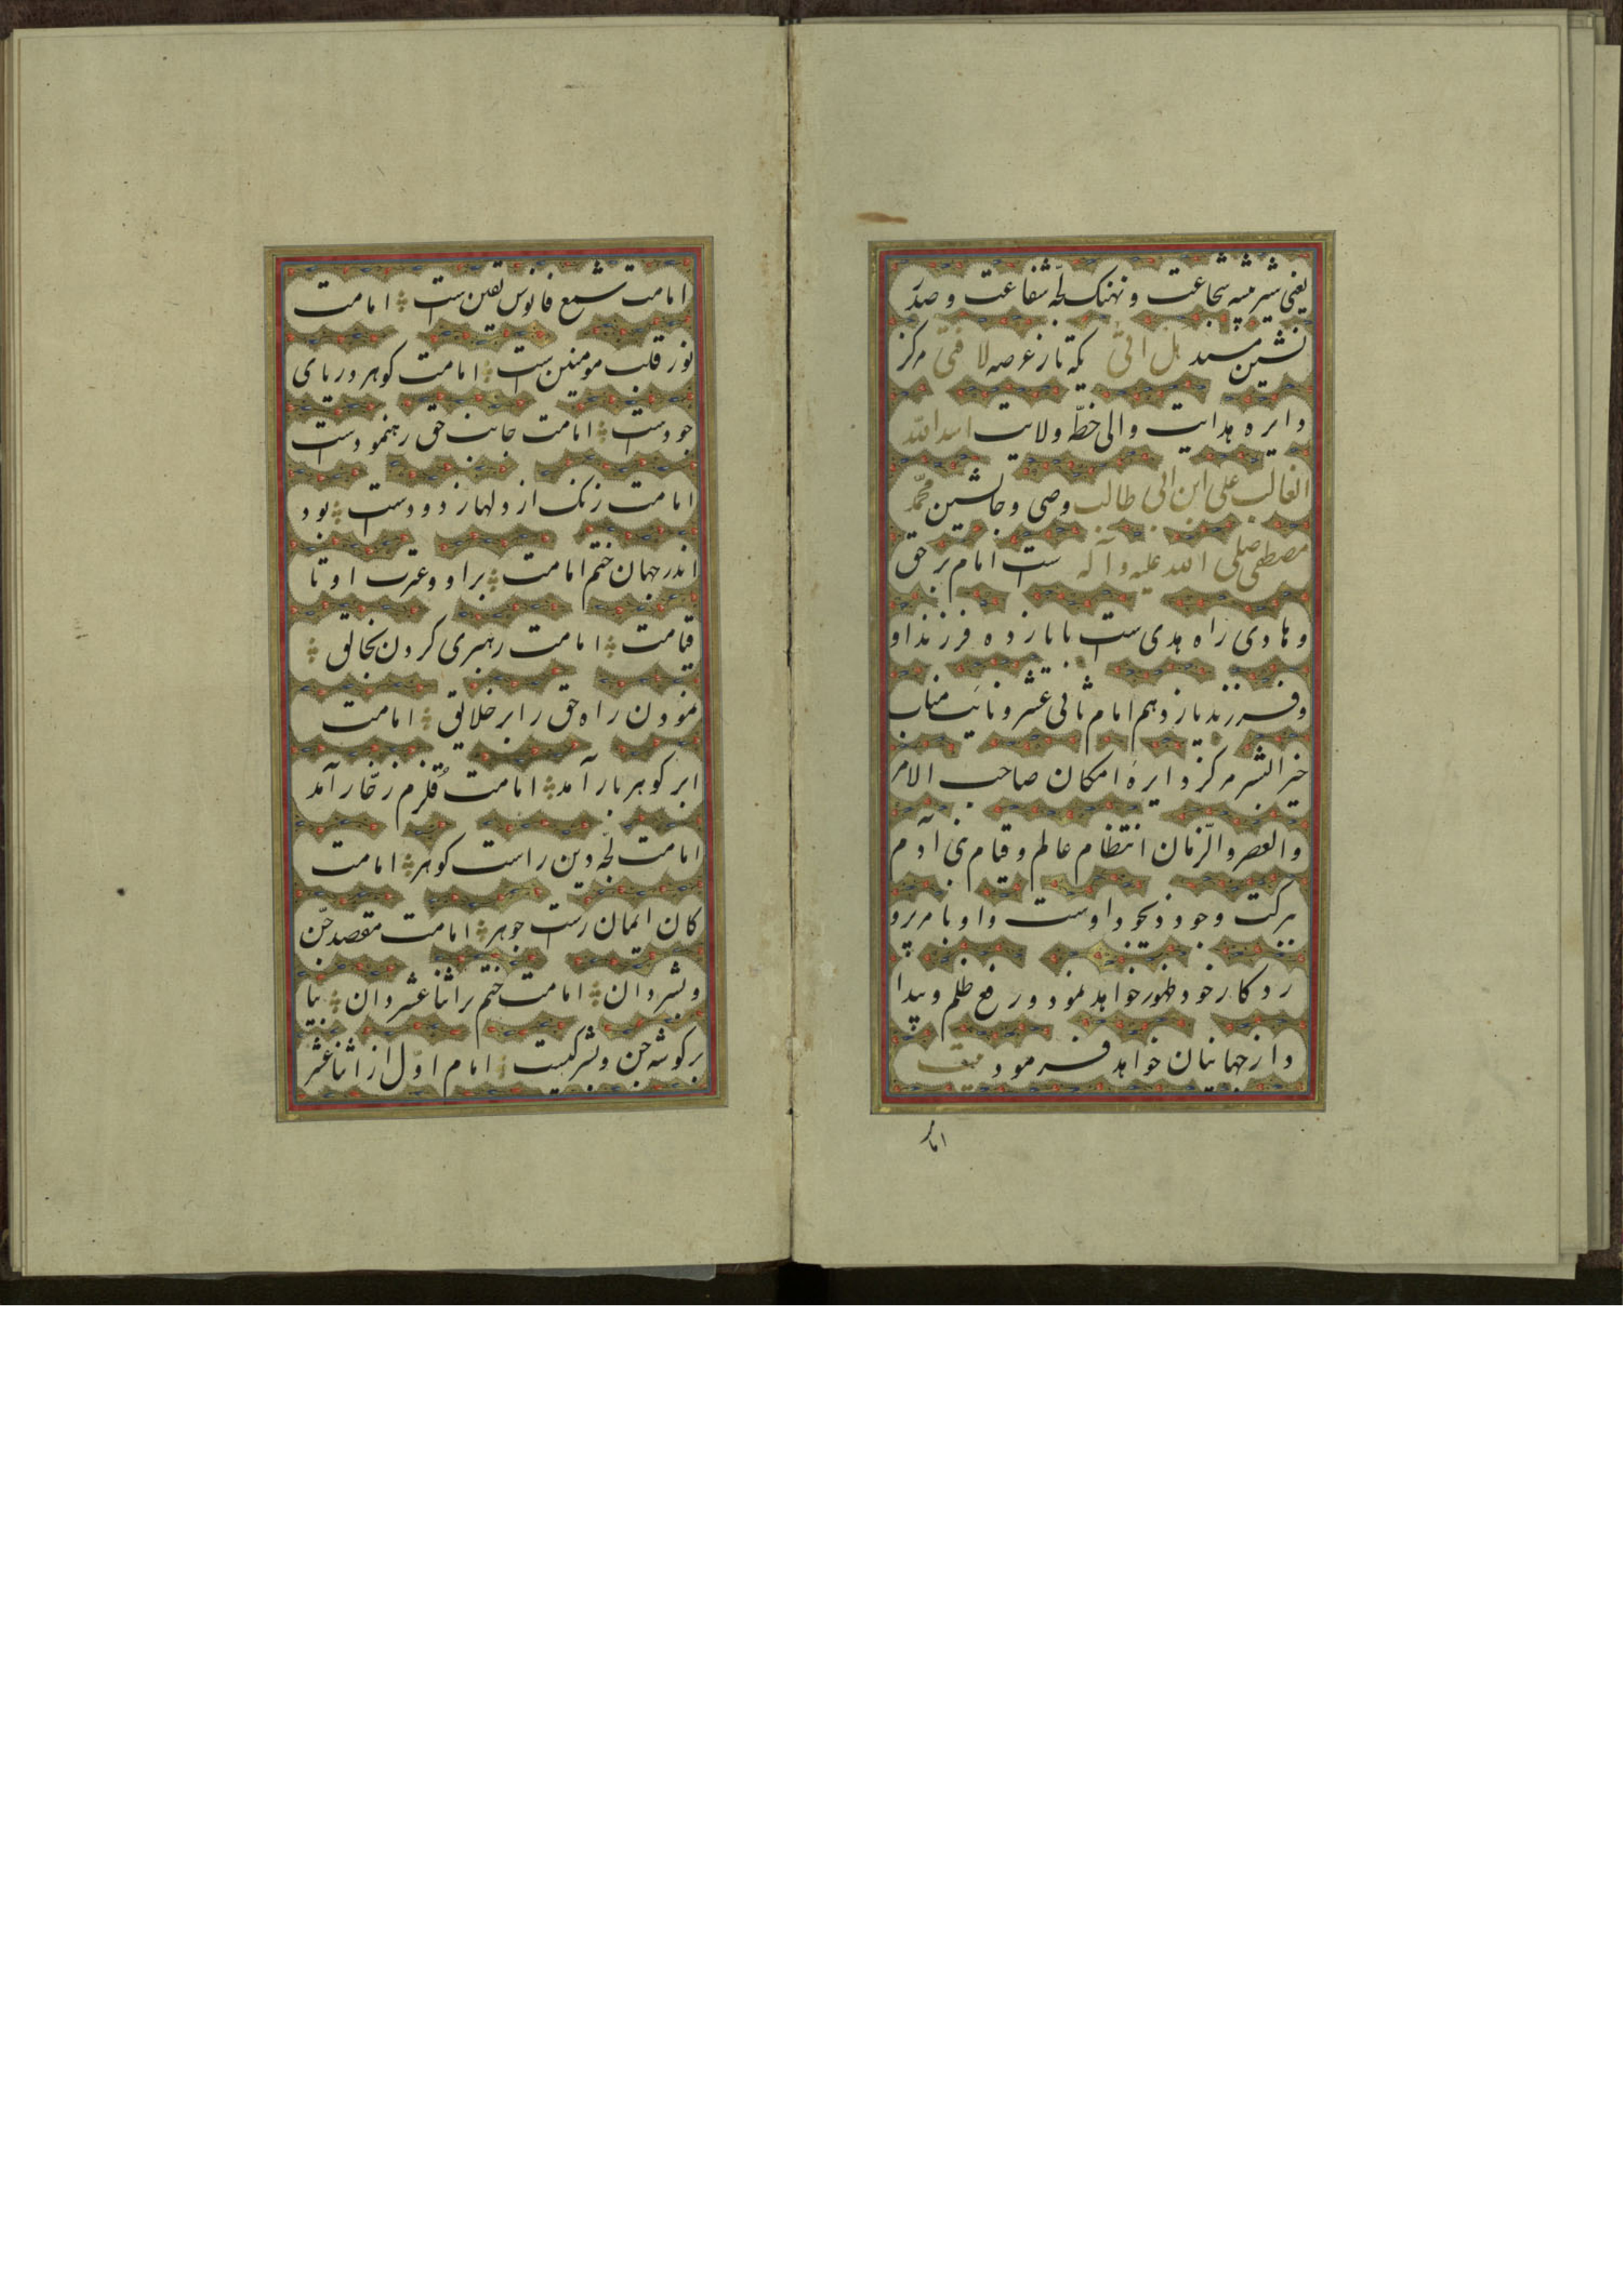 یعنی شیر بیشه شجاعت و نهنک لجّه شفاعت و صدر
نشین مسند هل اتیٰ یکه تاز عرصه لا فتیٰ مرکز
دایره هدایت والی خطّه ولایت اسد الله
الغالب علی ابن ابی طالب وصی و جانشین محمّد
مصطفی صلی الله علیه و آله ست امام بر حق
و هادی راه هدی ست با یازده فرزند او
و فرزند یازدهم امام ثانی عشر و نایب مناب
خیر البشر مرکز دایرهٔ امکان صاحب الامر
والعصر والزّمان انتظام عالم و قیام بنی آدم
ببرکت وجود ذیجود اوست و او بامر پرو
ردکار خود ظهور خواهد نمود و رفع ظلم و بیدا
د از جهانیان خواهد فرمود
امامت
امامت شمع فانوس یقین ست امامت
نور قلب مومنین ست امامت کوهر دریای
جودست امامت جانب حق رهنمودست
امامت زنک از دلها زدودست بود
اندر جهان ختم امامت بر او و عترت او تا
قیامت امامت رهبری کردن بخالق
نمودن راه حق را بر خلایق امامت
ابر کوهر بار آمد امامت قُلزم زخّار آمد
امامت لجّه دین راست کوهر امامت
کان ایمان راست جوهر امامت مقصد جن
و بشر دان امامت ختم بر اثنا عشر دان بیا
بر کوشه جن و بشر کیست امام اوّل از اثنا عشر